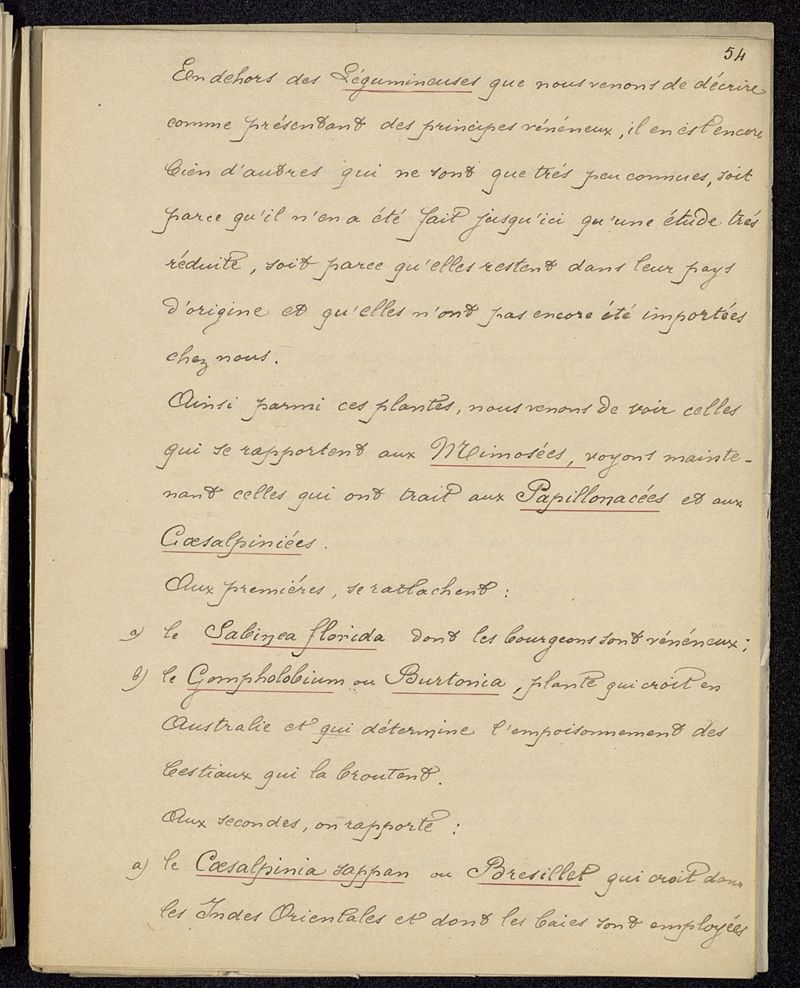 54
En dehors des Légumineuses que nous venons de décrire
comme présentant des principes vénéneux, il en est encore
bien d'autres qui ne sont que très peu connues, soit
parce qu'il n'en a été fait jusqu'ici qu'une étude très
réduite, soit parce qu'elles restent dans leur pays
d'origine et qu'elles n'ont pas encore été importées
chez nous.
Ainsi parmi ces plantes, nous venons de voir celles
qui se rapportent aux Mimosées, voyons mainte-
nant celles qui ont trait aux Papillonacées et aux
Cæsalpiniées.
Aux premières, se rattachent :
a) le Sabinea florida dont les bourgeons sont vénéneux ;
b) le Gompholobium ou Burtonia, plante qui croit en
Australie et qui détermine l'empoisonnement des
bestiaux qui la broutent.
Aux secondes, on rapporte :
a) le Cæsalpinia sappan ou Bresillet qui croit dans
les Indes Orientales et dont les baies sont employées